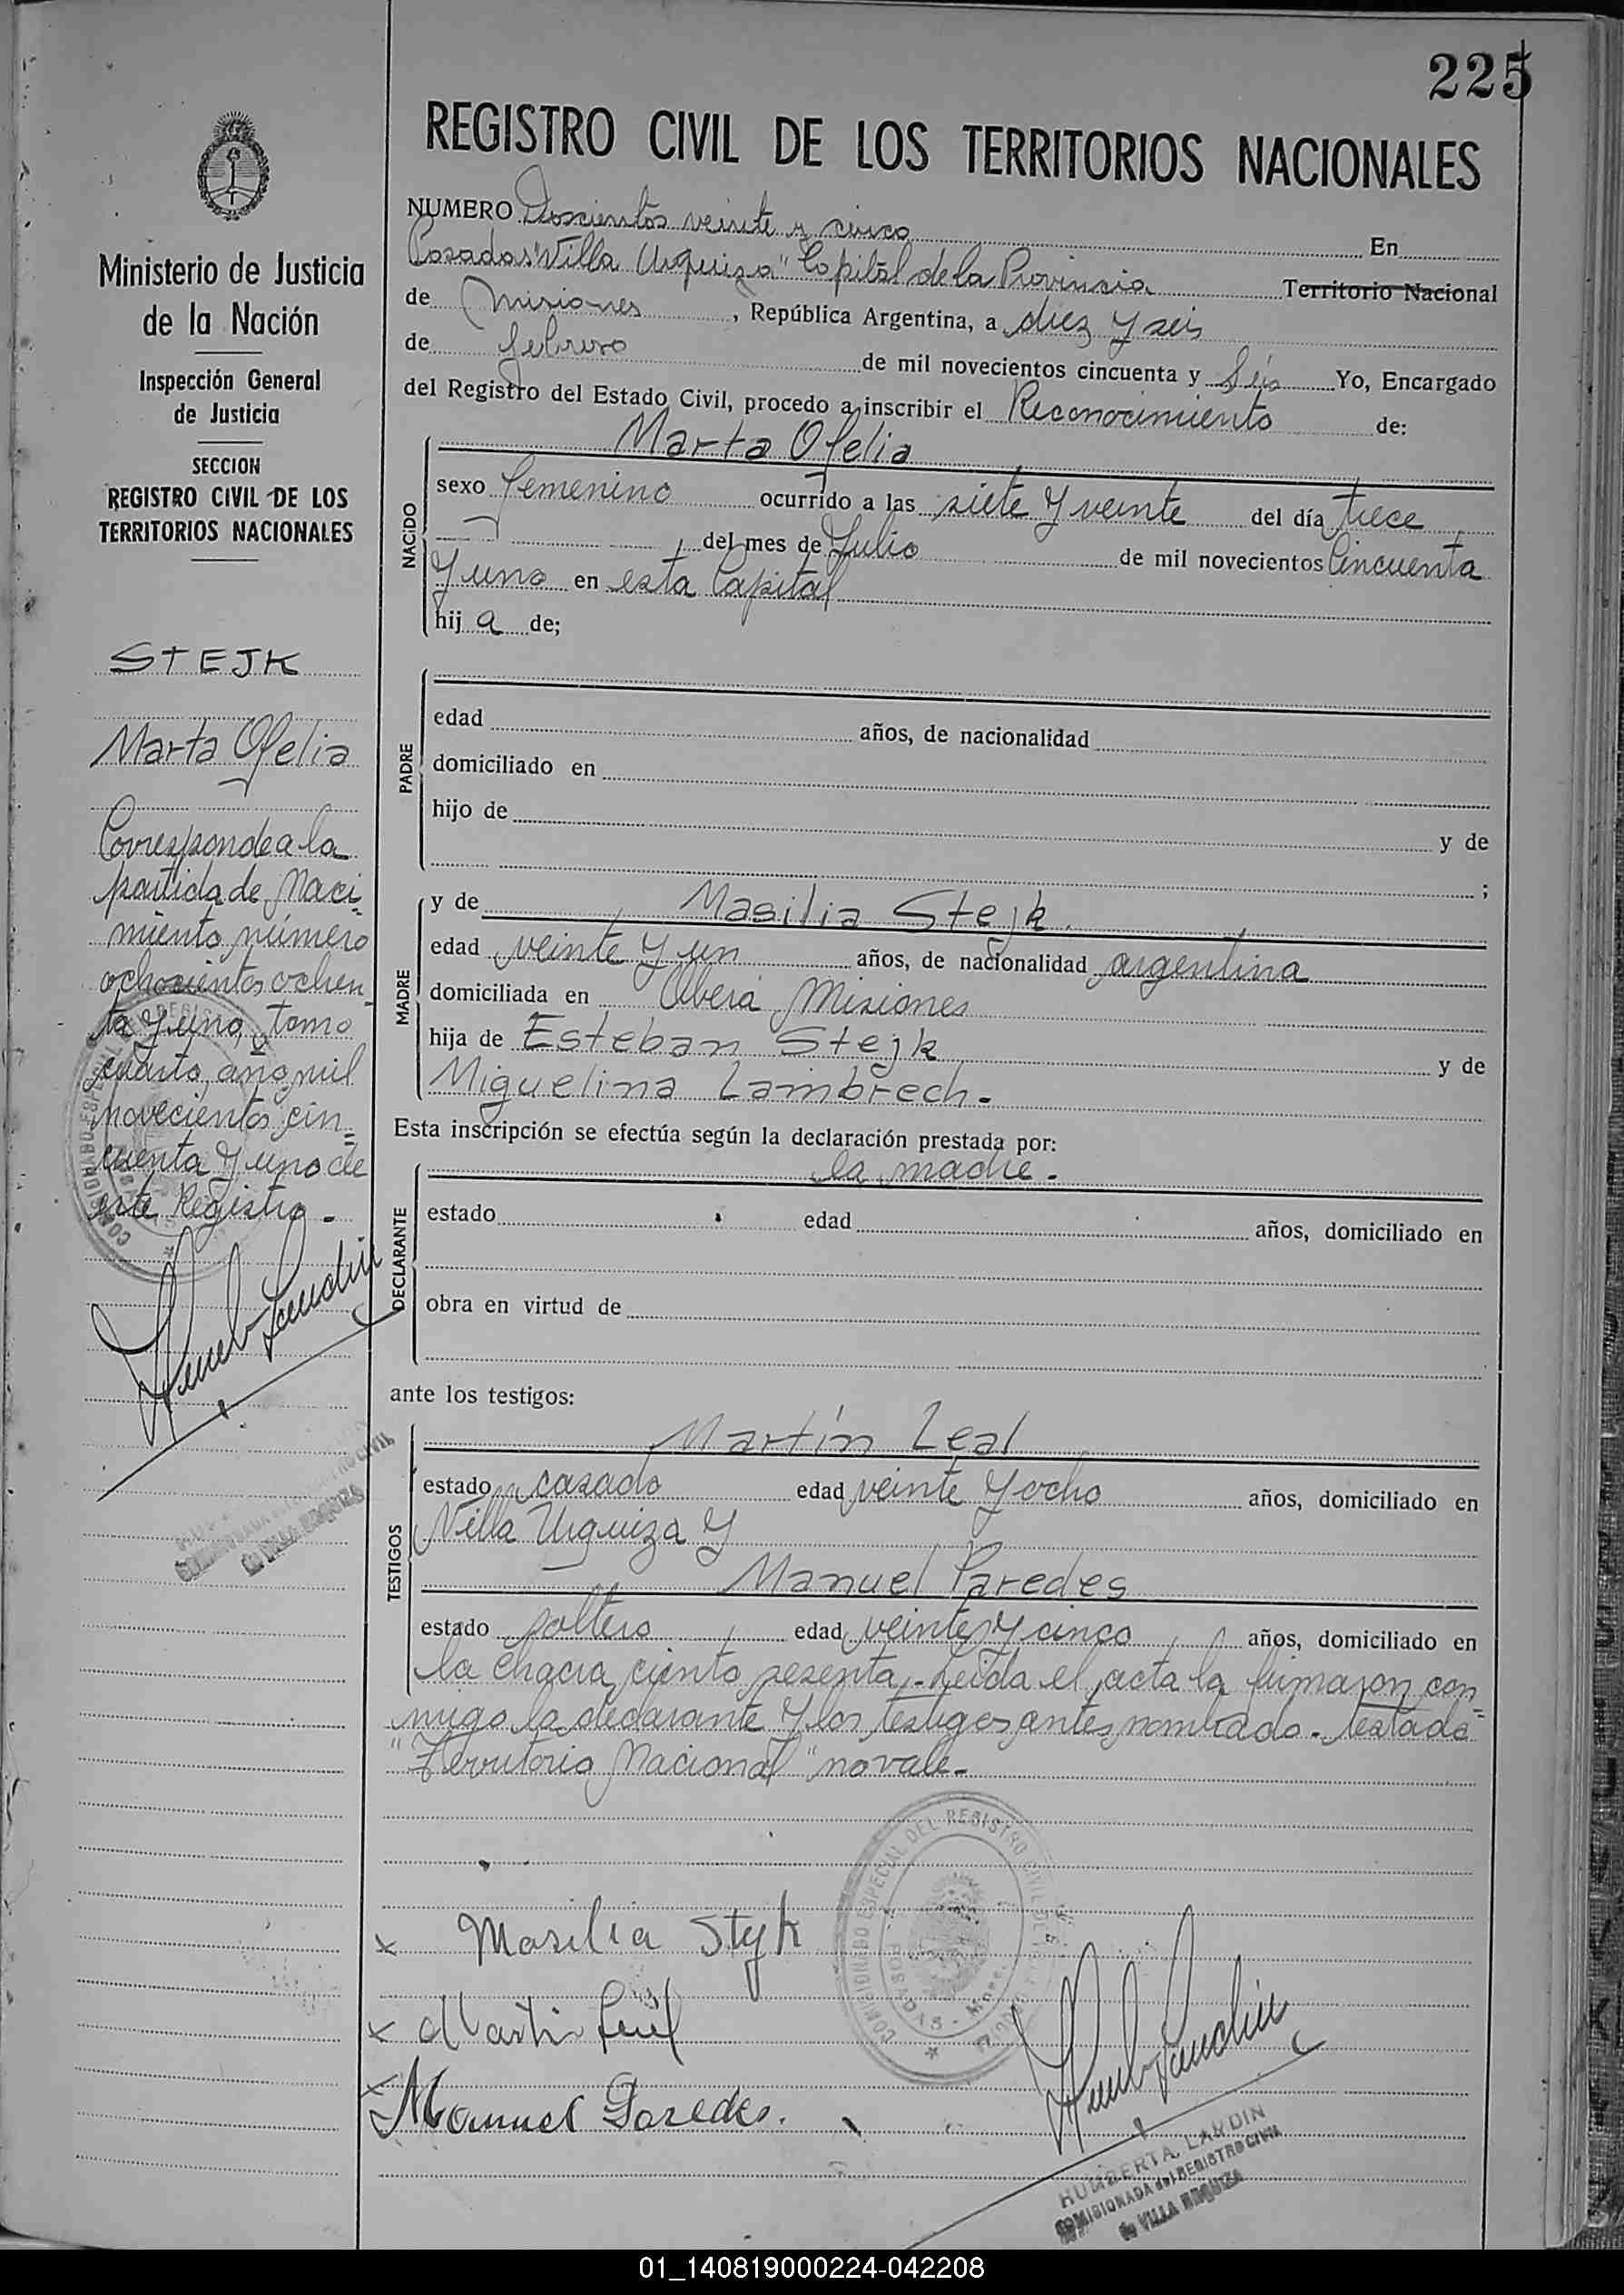 225
REGISTRO CIVIL DE LOS TERRITORIOS NACIONALES
Ministerio de Justicia
de la Nación
Inspección General
de Justicia
SECCION
REGISTRO CIVIL DE LOS
TERRITORIOS NACIONALES
STEJK
Marta Ofelia
Corresponde a la
partida de Naci-
miento número
ochocientos ochen-
ta y uno, tomo
cuarto, año mil
novecientos cin=
cuenta y uno de
este Registro.-
NUMERO Doscientos veinte y cinco En
Posadas "Villa Urquiza" Capital de la Provincia Territorio Nacional
de Misiones, República Argentina, a diez y seis
de febrero de mil novecientos cincuenta y Séis Yo, Encargado
del Registro del Estado Civil, procedo a inscribir el Reconocimiento de:
NACIDO
Marta Ofelia
sexo femenino ocurrido a las siete y veinte del día trece
del mes de Julio de mil novecientos Cincuenta
y uno en esta Capital
hij a de;
PADRE
edad años, de nacionalidad
domiciliado en
hijo de y de
;
MADRE
y de Masilia Stejk.
edad veinte y un años, de nacionalidad argentina
domiciliada en Oberá Misiones
hija de Esteban Stejk y de
Miguelina Lambrech.-
Esta inscripción se efectúa según la declaración prestada por:
DECLARANTE
la madre.-
estado edad años, domiciliado en
obra en virtud de
ante los testigos:
TESTIGOS
Martín Leal
estado casado edad veinte y ocho años, domiciliado en
Villa Urquiza y
Manuel Paredes
estado soltero edad veinte y cinco años, domiciliado en
la chacra ciento sesenta.- Leida el acta la firmaron con-
migo la declarante y los testigos antes nombrado.- testado=
"Territorio Nacional" no vale.-
COMISIONADO ESPECIAL DEL REGISTRO CIVIL
POSADAS - Mnes.
x Masilia Stejk
x Martin Leal
x Manuel Paredes.
HUMBERTA LANDIN
COMISIONADA del REGISTRO CIVIL
de VILLA URQUIZA
01_140819000224-042208